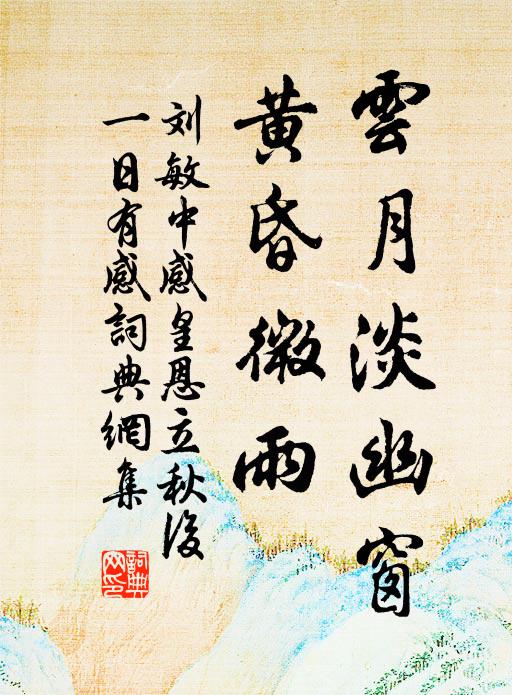 雲月淡幽窗
黃昏微雨
刘敏中感皇恩立秋後
一日有感詞典網集
詞典網印